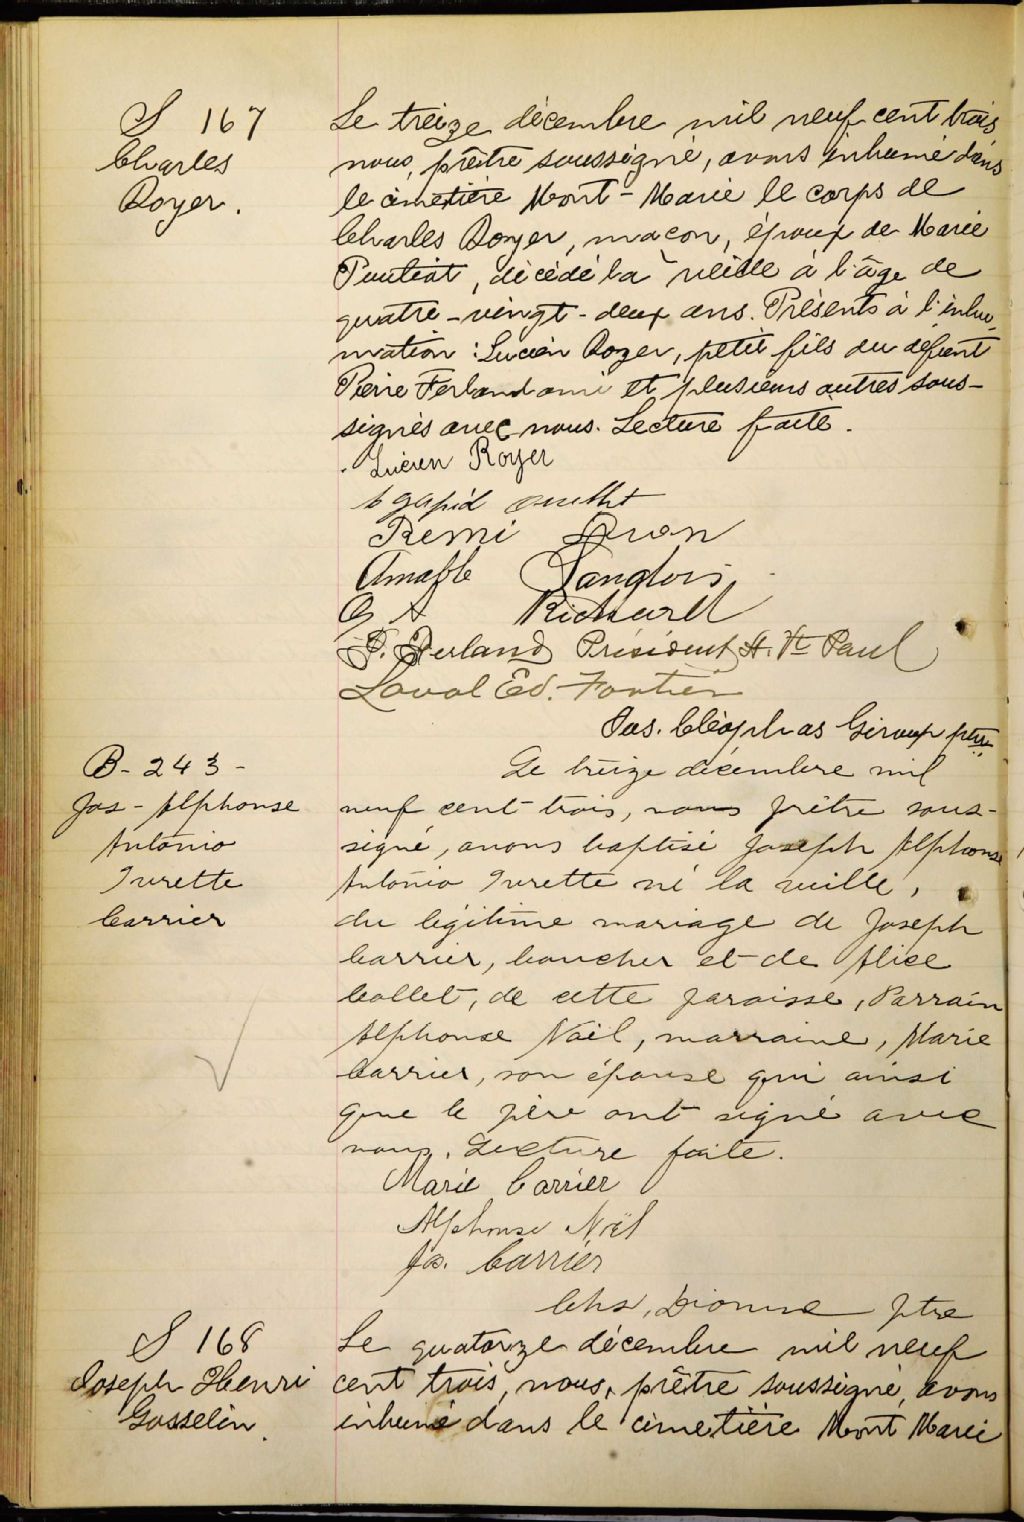 S 167
Charles
Royer.
Le treize décembre mil neuf cent trois
nous, prêtre soussigné, avons inhumé dans
le cimetière Mont-Marie le corps de
Charles Royer, maçon, époux de Marie
Pouliot, décédé la veille à l'âge de
quatre-vingt-deux ans. Présents à l'inhu-
mation : Lucien Royer, petit fils du défunt
Pierre Ferland ami et plusieurs autres sous-
signés avec nous. Lecture faite.
Lucien Royer
Agapid Ouellet
Remi
Amable Langlois
G A Richard
P. Ferland Président St. Vt Paul
Laval Ed. Fortier
Jos. Cléophas Giroux ptre
B-243-
Jos-Alphonse
Antonio
Turette
Carrier
Le treize décembre mil
neuf cent trois, nous prêtre sous-
signé, avons baptisé Joseph Alphonse
Antonio Turette né la veille,
du légitime mariage de Joseph
Carrier, boucher et de Alice
Collet, de cette paroisse, Parrain
Alphonse Noël, marraine, Marie
Carrier, son épouse qui ainsi
que le père ont signé avec
nous. Lecture faite.
Marie Carrier
Alphonse Noël
Jos. Carrier
Chs. Dionne ptre
S 168
Joseph Henri
Gosselin.
Le quatorze décembre mil neuf
cent trois, nous, prêtre soussigné, avons
inhumé dans le cimetière Mont Marie